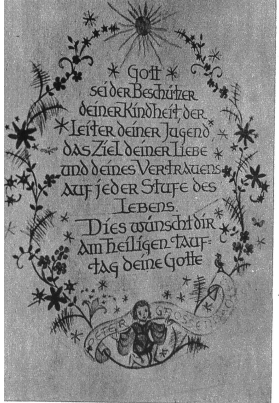 Gott
sei der Beschützer
deiner Kindheit, der
Leiter deiner Jugend
das Ziel deiner Liebe
und deines Vertrauens
auf jeder Stufe des
Lebens.
Dies wünscht dir
am heiligen Tauf-
tag deine Gotte